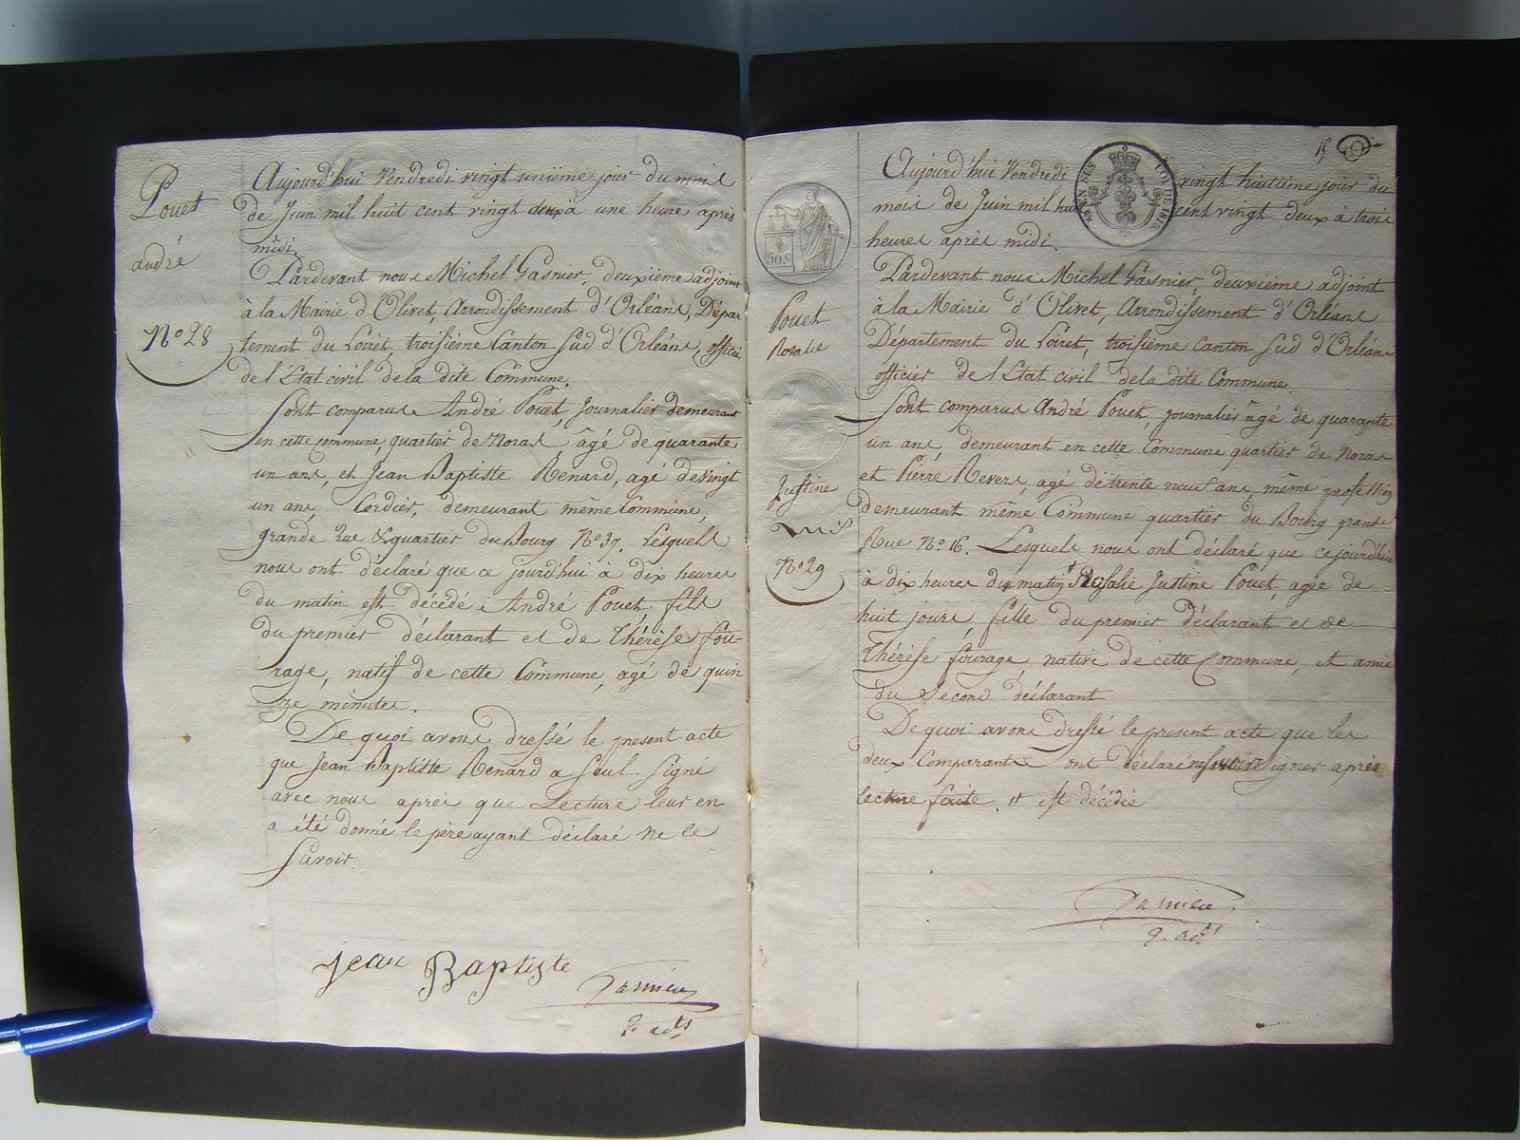 Pouet
andré
N° 28
Aujourd'hui Vendredi vingt unième jour du mois
de Juin mil huit cent vingt deux à une heure après
midi.
Pardevant nous Michel Gasnier, deuxième adjoint
à la Mairie d'Olivet, Arrondissement d'Orléans, Dépar
tement du Loiret, troisième Canton Sud d'Orléans, officier
de l'état civil de la dite Commune.
Sont comparus André Pouet, Journalier demeurant
en cette commune, quartier de Noras âgé de quarante
un ans, et Jean Baptiste Renard, agé de vingt
un ans, Cordier, demeurant même Commune,
grande Rue & quartier du Bourg N° 39. Lesquels
nous ont déclaré que ce jourd'hui à dix heures
du matin est décédé André Pouet fils
du premier déclarant et de Thérèse fou-
rage, natif de cette Commune, agé de quin
ze minutes.
De quoi avons dressé le present acte
que Jean Baptiste Renard a seul signé
avec nous après que Lecture leur en
a été donné le père ayant déclaré ne le
savoir
Jean Baptiste
Gasnier
2e adt
15
Pouet
Rosalie
Justine
N° 29
Aujourd'hui Vendredi vingt huitième jour du
mois de Juin mil huit cent vingt deux à trois
heures après midi.
Pardevant nous Michel Gasnier, deuxième adjoint
à la Mairie d'Olivet, Arrondissement d'Orléans
Département du Loiret, troisième Canton Sud d'Orléans
officier de l'Etat civil de la dite Commune.
Sont comparus André Pouet, journalier âgé de quarante
un ans, demeurant en cette Commune quartier de Noras
et Pierre Revers, agé de trente neuf ans, même profession
demeurant même Commune quartier du Bourg grande
Rue N° 16. Lesquels nous ont déclaré que ce jourd'hui
à dix heures du matin Rosalie Justine Pouet, agée de
huit jours, fille du premier déclarant et de
Thérèse fourage, native de cette Commune, et amie
du Second déclarant
De quoi avons dressé le present acte que les
deux Comparants ont déclaré ne savoir signer après
lecture faite. est décédée
Gasnier
2. adt